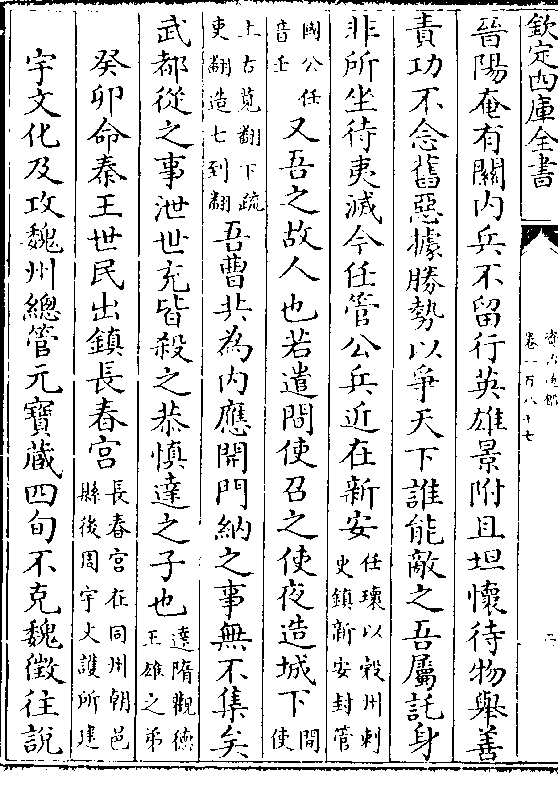 欽定四庫全書
資治通鑑
卷一百八十七
二
晉陽奄有關内兵不留行英雄景附且坦懷待物舉善
責功不念舊惡據勝勢以爭天下誰能敵之吾屬託身
非所坐待夷滅今任管公兵近在新安任瓌以穀州刺
史鎮新安封管
國公任
音壬又吾之故人也若遣間使召之使夜造城下間
使
上古莧翻下疏
吏翻造七到翻吾曹共為内應開門納之事無不集矣
武都從之事泄世充皆殺之恭慎達之子也達隋觀德
王雄之弟
癸卯命秦王世民出鎮長春宫長春宫在同州朝邑
縣後周宇文護所建
宇文化及攻魏州總管元寶蔵四旬不克魏徴往說